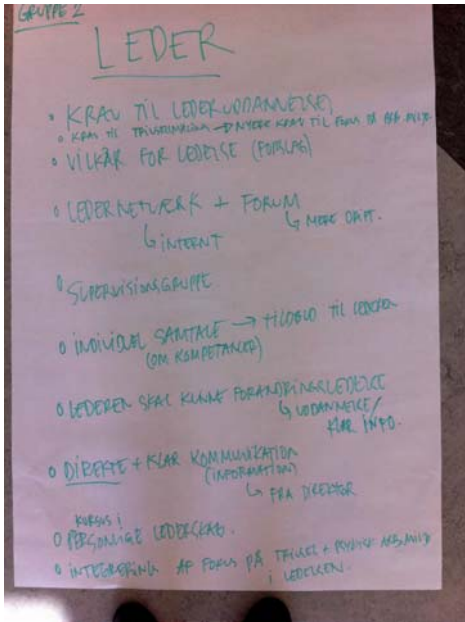 GRUPPE 2
LEDER
• KRAV TIL LEDERUDDANNELSE
○ KRAV TIL → NYERE KRAV TIL FOKUS PÅ
○ VILKÅR FOR LEDELSE (FORSLAG)
○ LEDERNETVÆRK + FORUM
↳ INTERNT
↳ MERE DRIFT.
○ SUPERVISIONSGRUPPE
○ INDIVIDUEL SAMTALE → TILBUD TIL LEDEREN
(OM KOMPETANCER)
○ LEDEREN SKAL KUNNE FORANDRINGSLEDELSE
↳ UDDANNELSE/
KLAR INFO.
○ DIREKTE + KLAR KOMMUNIKATION
(INFORMATION)
↳ FRA DIREKTØR
KURSUS I
○ PERSONLIGE LEDERSKAB.
○ INTEGRERING AF FOKUS PÅ TRIVSEL + PSYKISK ARB.MILJØ
I LEDELSEN.